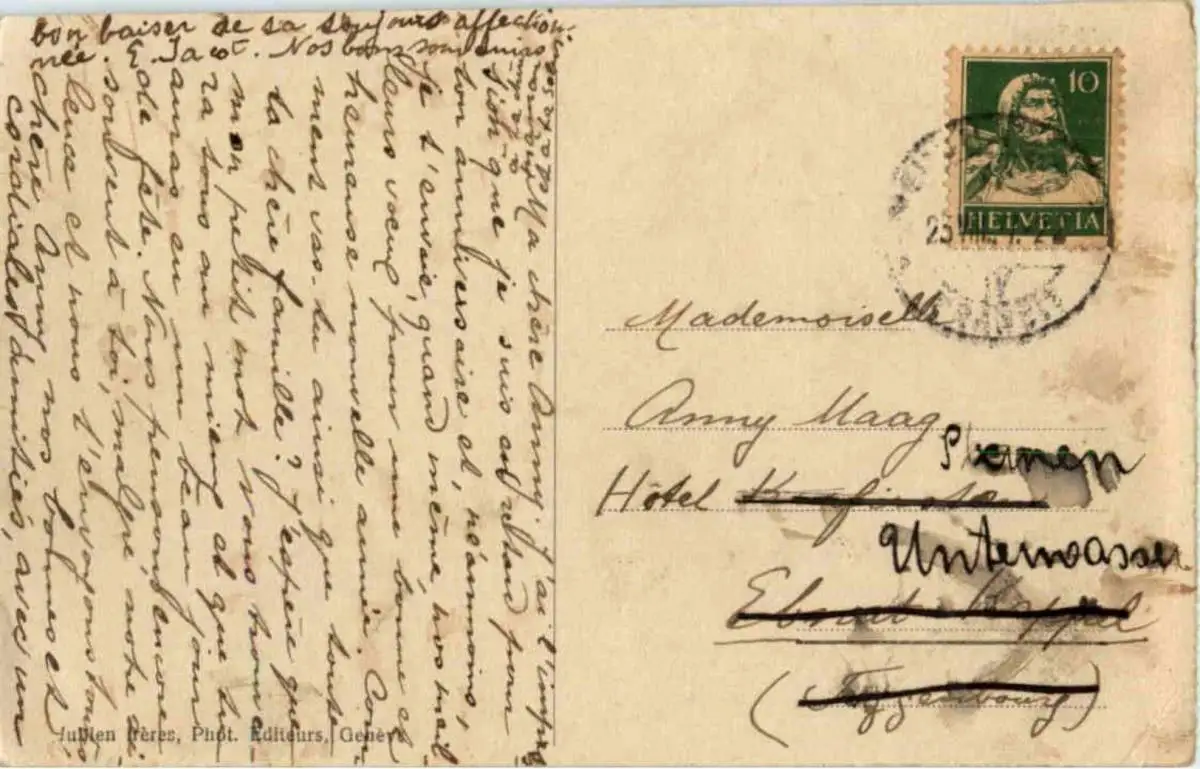 Ma chère Anny. J'ai l'impres
sion que je suis en retard pour
ton anniversaire et, néanmoins,
je t'envoie, quand même, nos meil
leurs voeux pour une bonne et
heureuse nouvelle année. Com
ment vas-tu ainsi que toute
ta chère famille? J'espère que
mon petit mot vous trouve
ra tous au mieux et que tu
auras eu un beau jour
de fête. Nous pensons encore
souvent à toi, malgré notre si
lence et nous t'envoyons tous,
chère Anny nos bonnes et
cordiales amitiés, avec un
bon baiser de ta toujours affection-
née. E. Jacot. Nos bons souvenirs
Jullien frères, Phot. Editeurs, Genève
10
HELVETIA
Mademoiselle
Anny Maag
Sternen
Hôtel
Unterwasser
Ebnat-Kappel
(Toggenbourg)